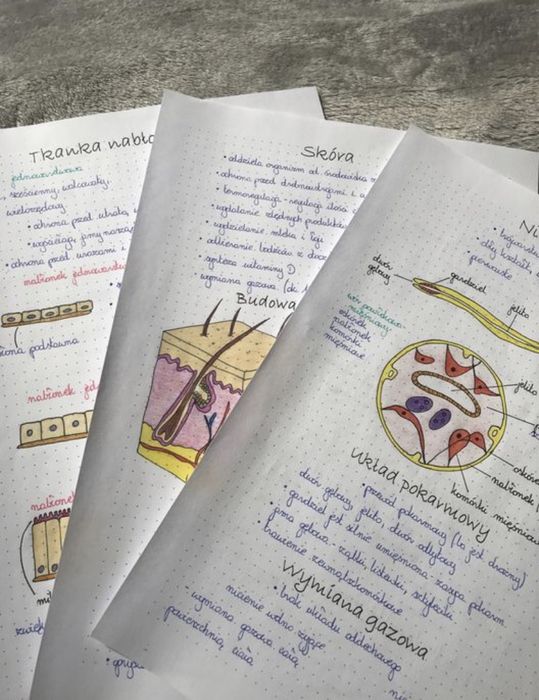 Tkanka nabło
jednowarstwowa
sześcienny, walcowaty,
wielorzędowy
• ochrona przed utratą
• wyściełają jamy narząd
• ochrona przed urazami i
nabłonek jednowarstw
błona podstawna
nabłonek jed
nabłonek
Skóra
• oddziela organizm od środowiska z
• ochrona przed drobnoustrojami i
• termoregulacja - regulacja ilości
• wydalanie zbędnych produktów
• wydzielanie mleka i łoju
• odbieranie bodźców z
• synteza witaminy D
• wymiana gazowa (ok. 1
Budowa
• dwubo
• długi kształt,
• pierwouste
otwór gębowy
gardziel
jelito
wór powłokowo-
mięśniowy
oskórek
nabłonek
komórki
mięśniowe
jelito
oskórek
nabłonek
komórki mięśniowe
Układ pokarmowy
• przewód pokarmowy (to jest drożny)
otwór gębowy, jelito, otwór odbytowy
• gardziel jest silnie umięśniona - zasysa pokarm
• jama gębowa - ząbki, listewki, sztyleciki
• trawienie zewnątrzkomórkowe
Wymiana gazowa
• brak układu oddechowego
nicienie wolno żyjące
- wymiana gazowa całą
powierzchnią ciała